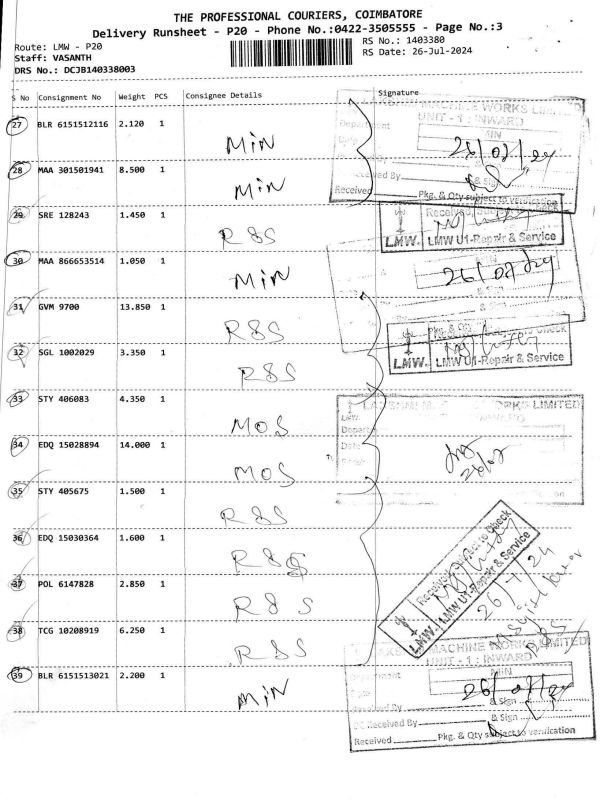 THE PROFESSIONAL COURIERS, COIMBATORE
Delivery Runsheet - P20 - Phone No.:0422-3505555 - Page No.:3
Route: LMW - P20
RS No.: 1403380
Staff: VASANTH
RS Date: 26-Jul-2024
DRS No.: DCJB140338003
S No Consignment No Weight PCS Consignee Details Signature
27 BLR 6151512116 2.120 1 MIN
28 MAA 301501941 8.500 1 MIN
29 SRE 128243 1.450 1 R&S
30 MAA 866653514 1.050 1 MIN
31 GVM 9700 13.850 1 R&S
32 SGL 1002029 3.350 1 R&S
33 STY 406083 4.350 1 MOS
34 EDQ 15028894 14.000 1 MOS
35 STY 405675 1.500 1 R&S
36 EDQ 15030364 1.600 1 R&S
37 POL 6147828 2.850 1 R&S
38 TCG 10208919 6.250 1 R&S
39 BLR 6151513021 2.200 1 MIN
LAKSHMI MACHINE WORKS LIMITED
UNIT - 1 : INWARD
Department MIN
Date 26/07/24
Received By & Sign
Received Pkg. & Qty subject to verification
LMW. LMW U1-Repair & Service
MIN
26/07/24
& Sign
LMW. LMW U1-Repair & Service
WORKS LIMITED
INWARD
Date
26/07
Received Subject to Check
LMW. LMW U1-Repair & Service
26/7/24
R&S
MACHINE WORKS LIMITED
UNIT - 1 : INWARD
MIN
26/07/24
Received By & Sign
DC Received By & Sign
Received Pkg. & Qty subject to verification